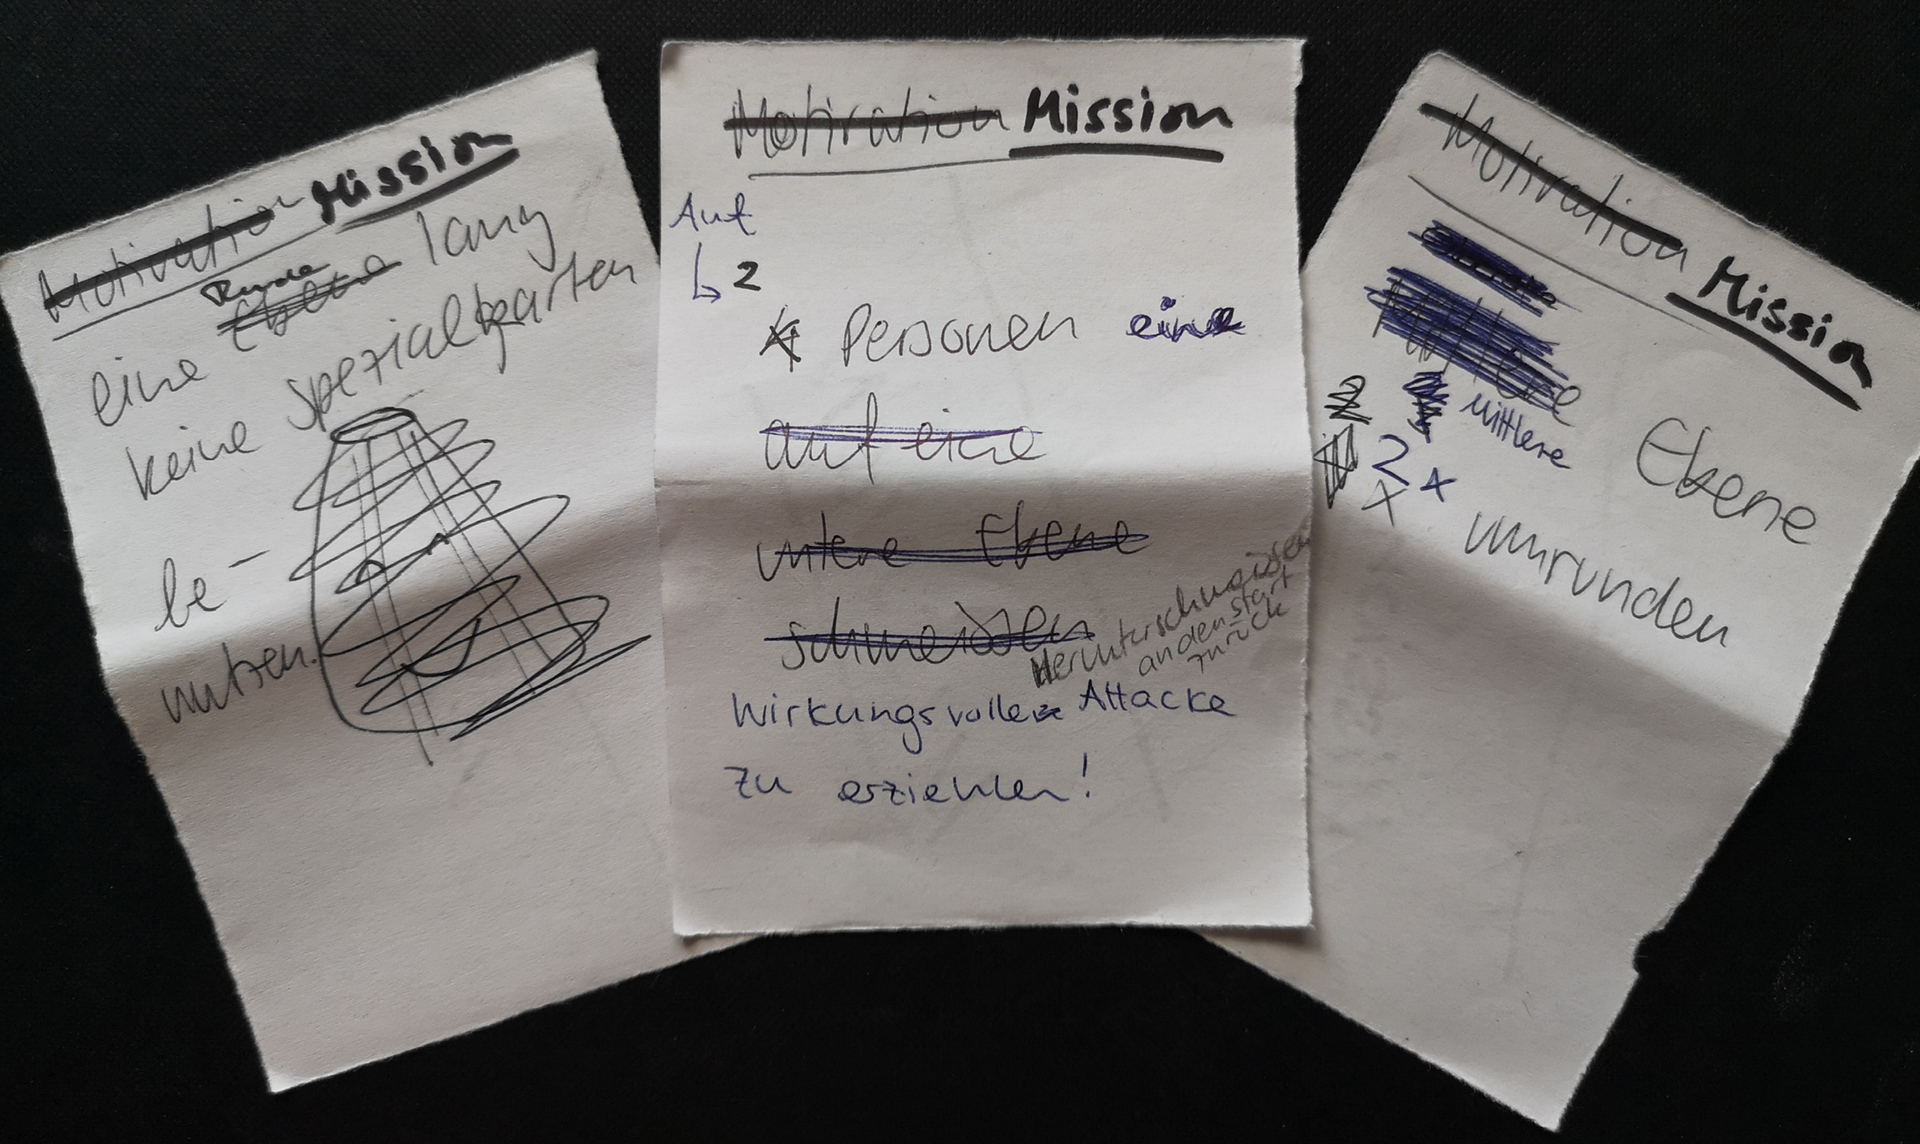 Motivation Mission
Runde
eine Ebene lang
keine Spezialkarten
be-
nutzen.
Motivation Mission
Auf
↳ 2
Personen eine
auf eine
untere Ebene
schmeissen
Herunterschmeissen
an den Start
zurück
Wirkungsvolle Attacke
zu erziehlen!
Motivation Mission
Mittlere
Mittlere Ebene
2x
x umrunden